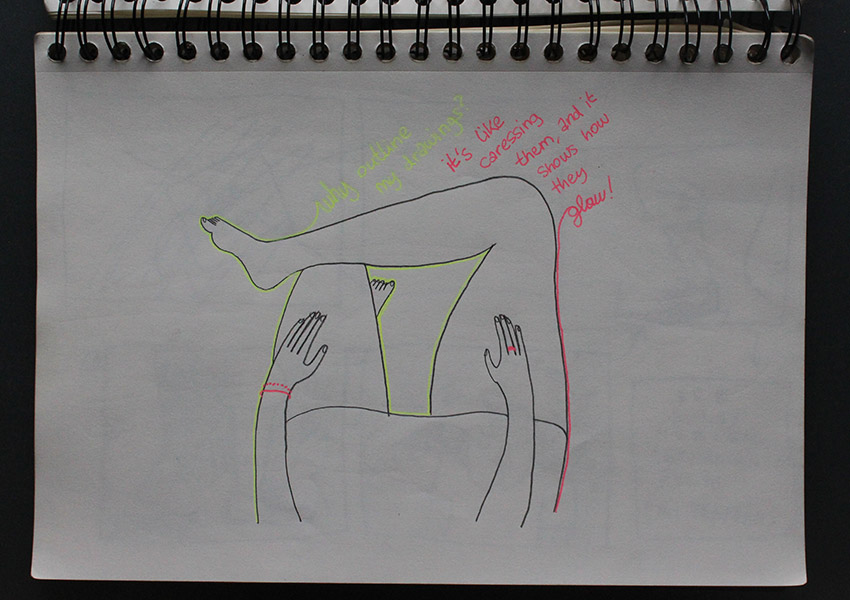 why outline
my drawings?
it's like
caressing
them, and it
shows how
they
glow!